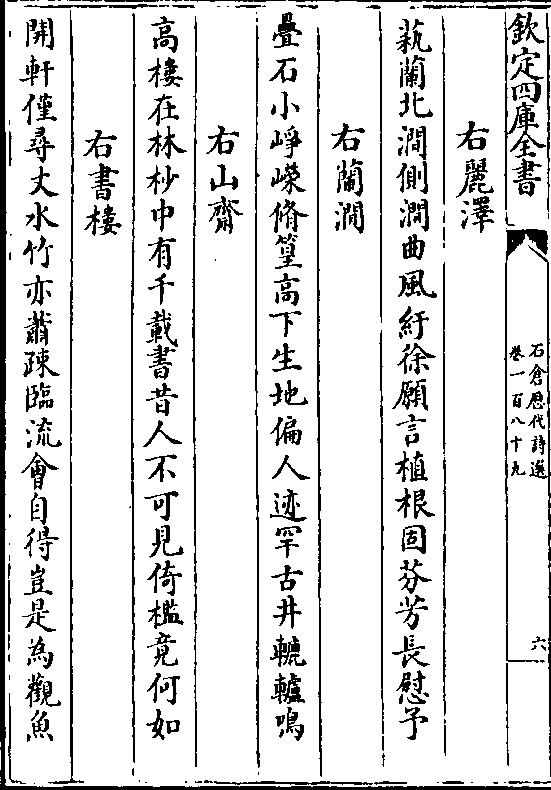 欽定四庫全書
石倉歴代詩選
卷一百八十九
六
右麗澤
蓺蘭北澗側澗曲風紆徐願言植根固芬芳長慰予
右蘭澗
疊石小崢嶸脩篁高下生地偏人迹罕古井轆轤鳴
右山齋
高樓在林杪中有千載書昔人不可見倚檻竟何如
右書樓
開軒僅尋丈水竹亦蕭疎臨流會自得豈是為觀魚